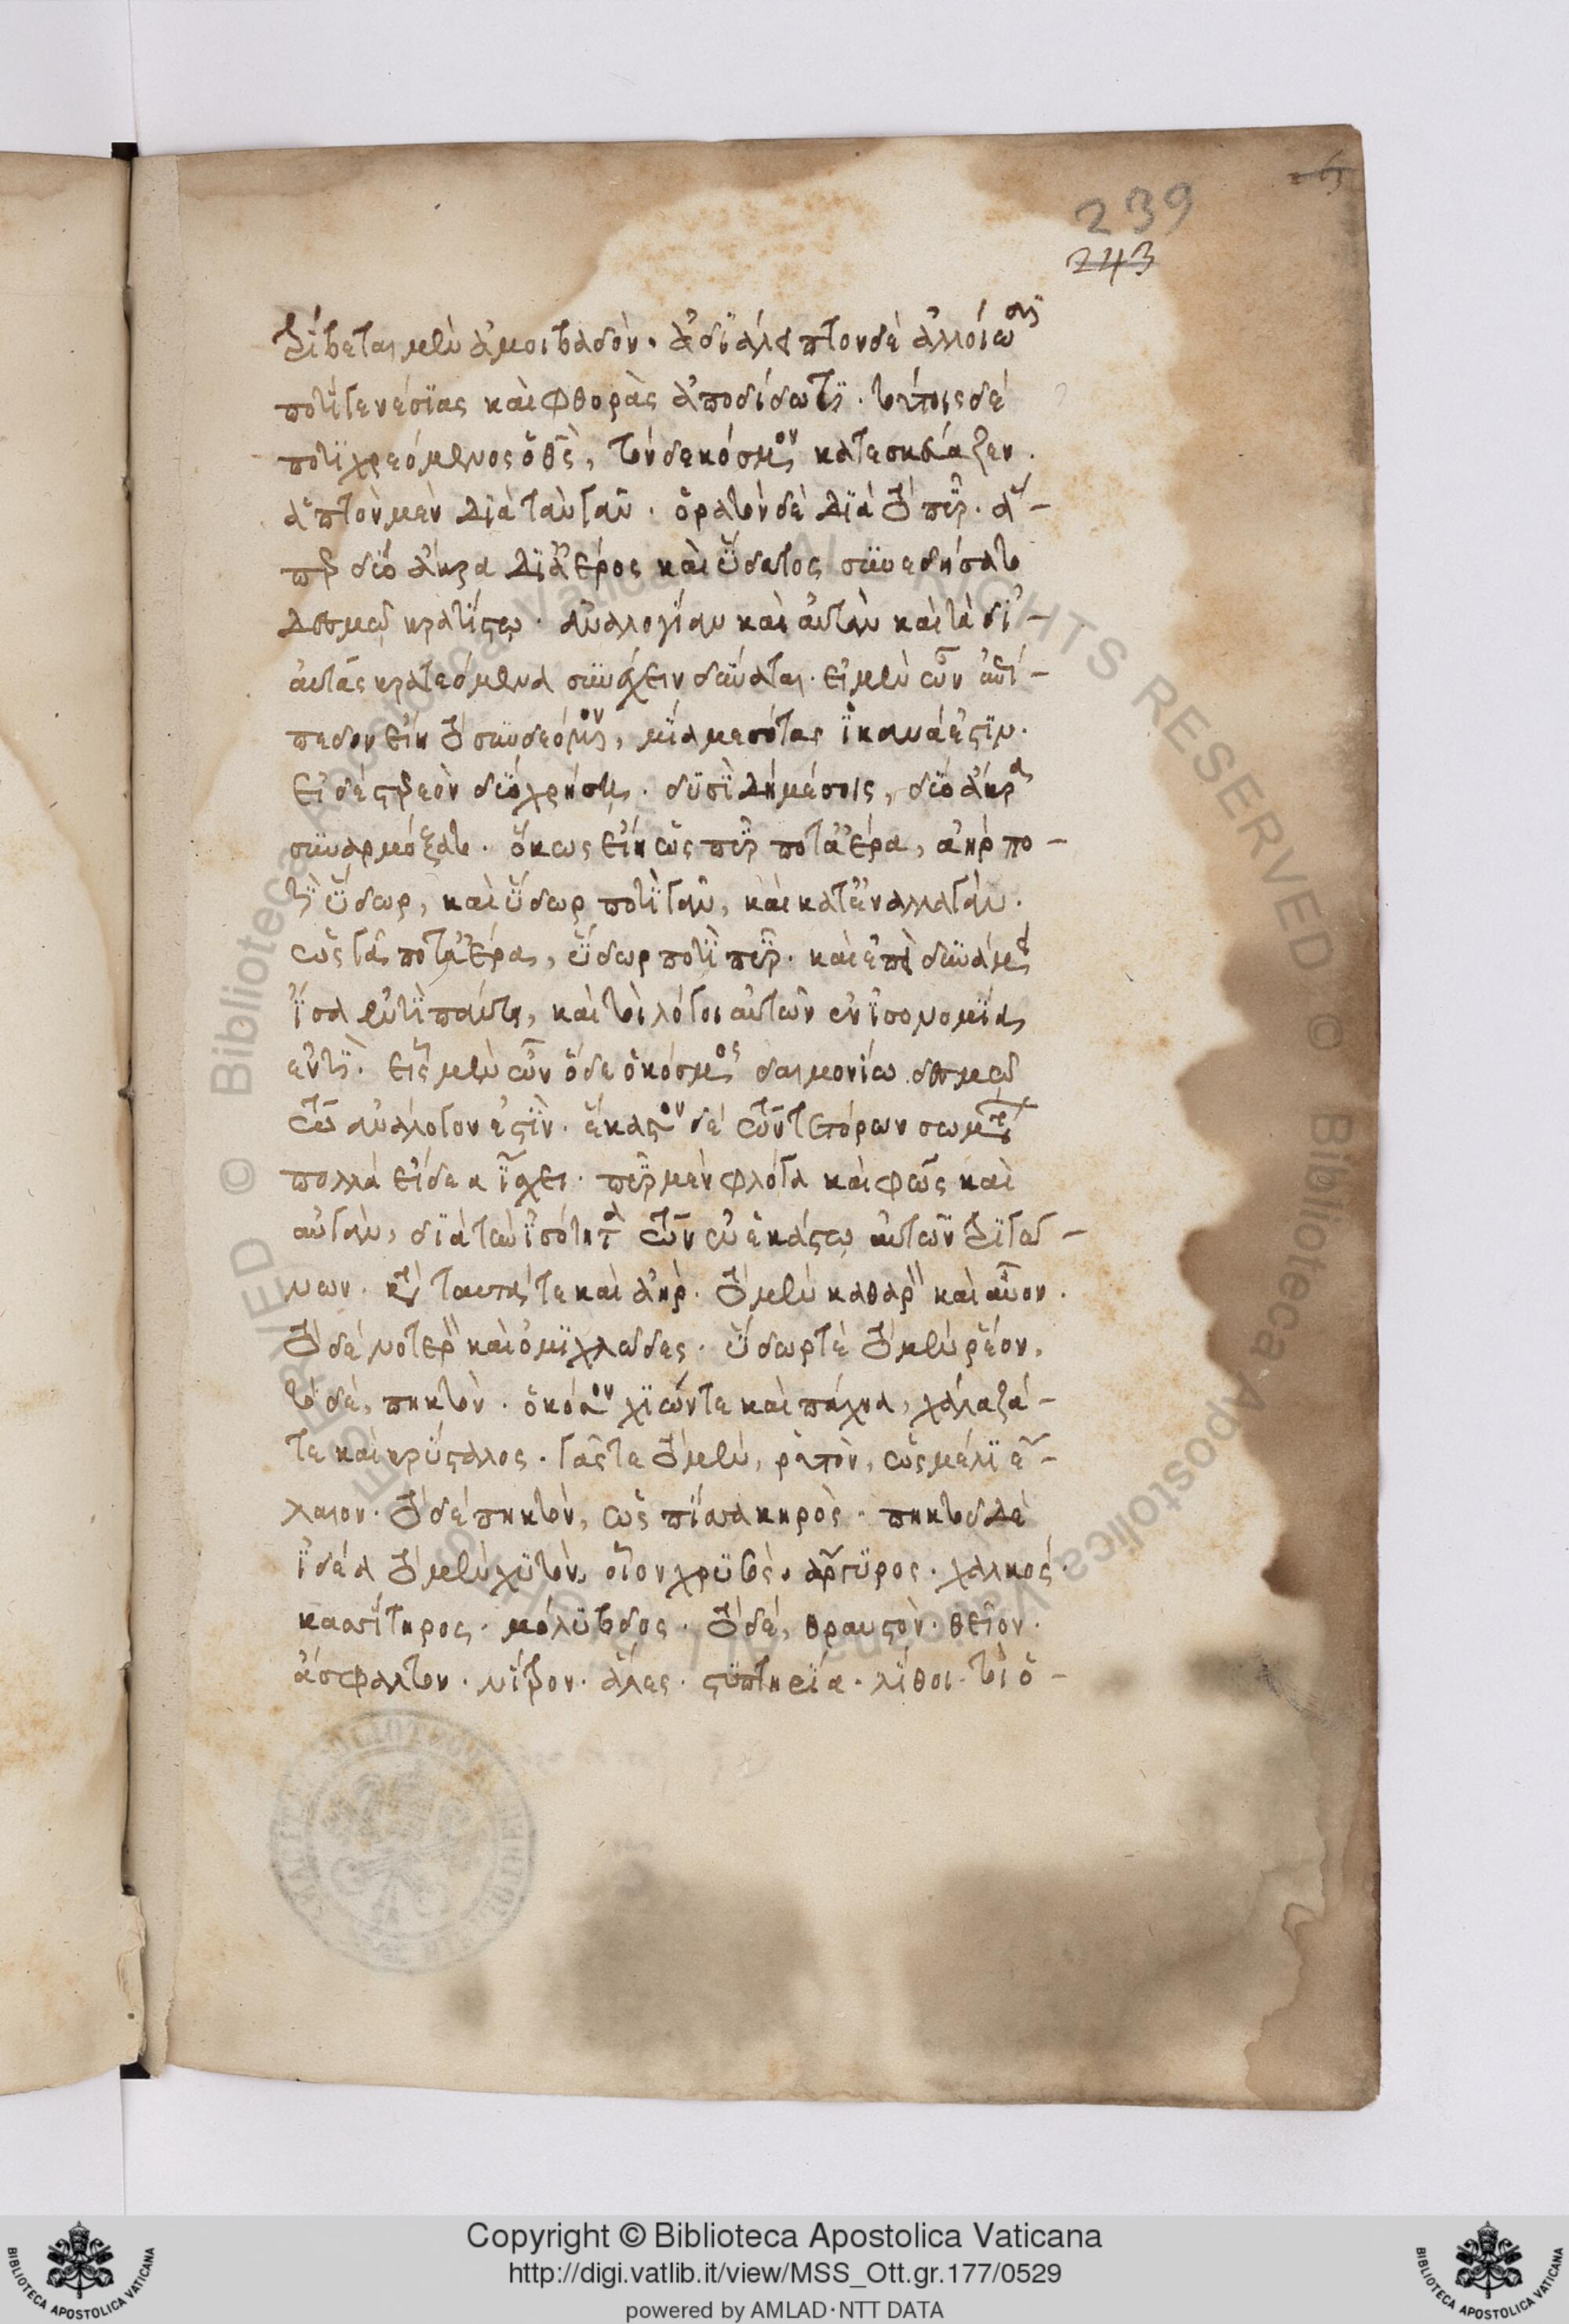 239
243
τρίβεται μὲν ἀμοιβαδὸν. ἀδιάλειπτον δὲ ἀλλοίωσιν
ποτὶ γενέσιας καὶ φθορὰς ἀποδίδωτι. τούτοις δὲ
ποτιχρεόμενος ὁ θεὸς, τόνδε κόσμον κατεσκεύαξεν.
ἁπτὸν μὲν διὰ τὰν γᾶν. ὁρατὸν δὲ διὰ τὸ πῦρ. ἅ-
περ δύο ἄκρα δι' ἀέρος καὶ ὕδατος συνεδήσατο
δεσμῷ κρατίστῳ. ἀναλογίαν καὶ αὐτὰν καὶ τὰ δι'
αὐτᾶς κρατεόμενα συνέχειν δύναται. εἰ μὲν ὦν ἐπί-
πεδον εἴη τὸ συνδεόμενον, μία μεσότας ἱκανά ἐστιν.
εἰ δὲ στερεὸν δύο χρήσει. δυσὶ δὴ μέσοις, δύο ἄκρα
συναρμόξατο. ὅκως εἴη ὡς πῦρ ποτ' ἀέρα, ἀὴρ πο-
τὶ ὕδωρ, καὶ ὕδωρ ποτὶ γᾶν, καὶ κατ' ἐναλλαγάν.
ὡς γᾶ ποτ' ἀέρα, ὕδωρ ποτὶ πῦρ. καὶ ἐπεὶ δυνάμει
ἴσα ἐντὶ πάντα, καὶ τοὶ λόγοι αὐτῶν ἐν ἰσονομίᾳ
ἐντί. εἷς μὲν ὦν ὅδε ὁ κόσμος δαιμονίω δεσμῷ
τῷ ἀνάλογόν ἐστιν. ἕκαστον δὲ τῶν τεττόρων σωμάτων
πολλὰ εἴδεα ἴσχει. πῦρ μὲν φλόγα καὶ φῶς καὶ
αὐγάν, διὰ τὰν ἰσότητα τῶν ἐν ἑκάστῳ αὐτῶν τριγώ-
νων. κατὰ ταυτά τε καὶ ἀὴρ. τὸ μὲν καθαρὸν καὶ αὖον.
τὸ δὲ νοτερὸν καὶ ὀμιχλῶδες. ὕδωρ τὲ τὸ μὲν ῥέον.
τὸ δὲ, πηκτόν. ὁκόσον χιών τε καὶ πάχνα, χάλαζά-
τε καὶ κρύσταλος. γᾶς τε τὸ μὲν, ῥυτὸν, ὡς μέλι ἔ-
λαιον. τὸ δὲ πηκτὸν, ὡς πίσσα κηρὸς. πηκτοῦ δὲ
ἰδέα τὸ μὲν χυτὸν, οἷον χρυσὸς. ἄργυρος. χαλκός.
κασσίτηρος. μόλυβδος. τὸ δὲ, θραυστὸν. θεῖον.
ἄσφαλτον. νίτρον. ἅλες. στυπτηρία. λίθοι. τοὶ ὁ-
Copyright © Biblioteca Apostolica Vaticana
http://digi.vatlib.it/view/MSS_Ott.gr.177/0529
powered by AMLAD·NTT DATA